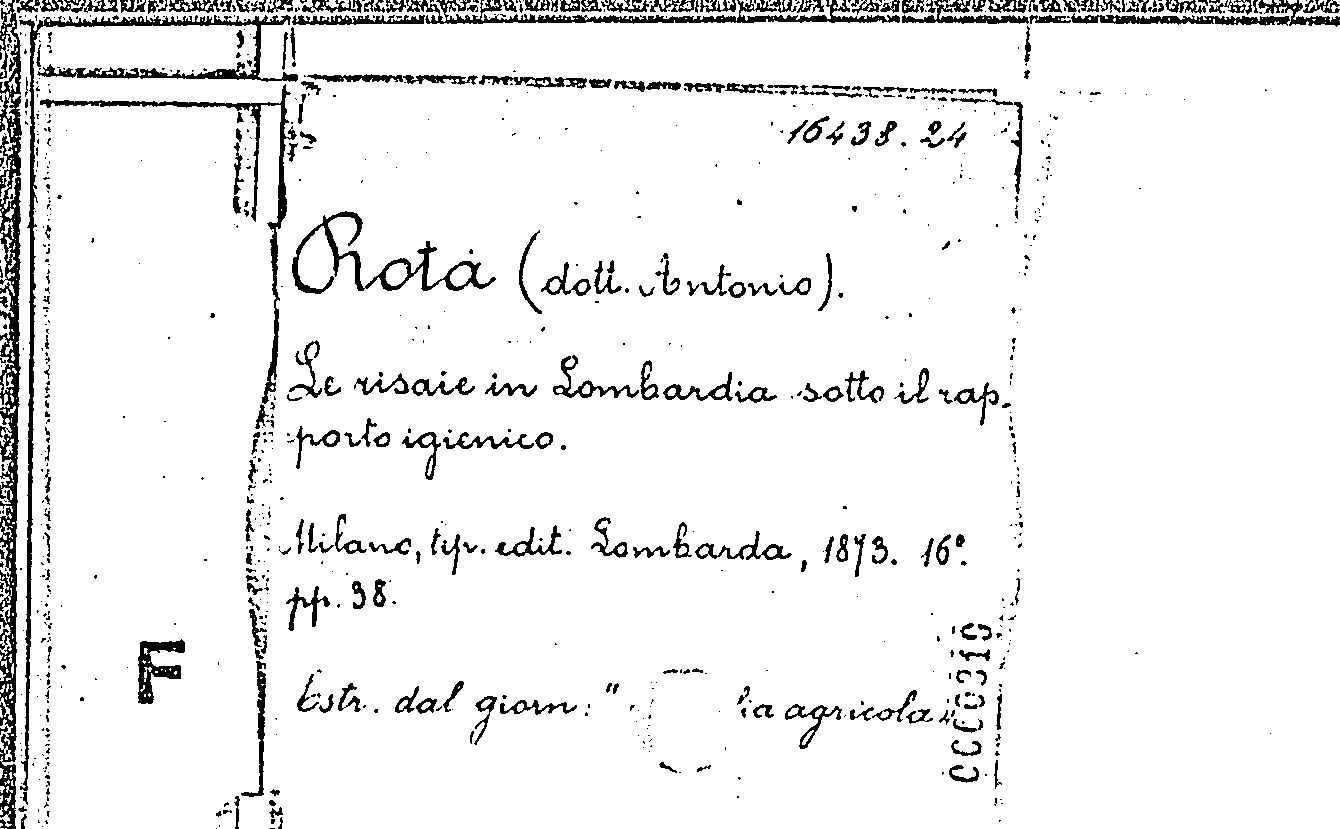 16438.24
Rota (dott. Antonio).
Le risaie in Lombardia sotto il rap-
porto igienico.
Milano, tip. edit. Lombarda, 1873. 16°.
pp. 38.
F
Estr. dal giorn: " agricola"
0000319